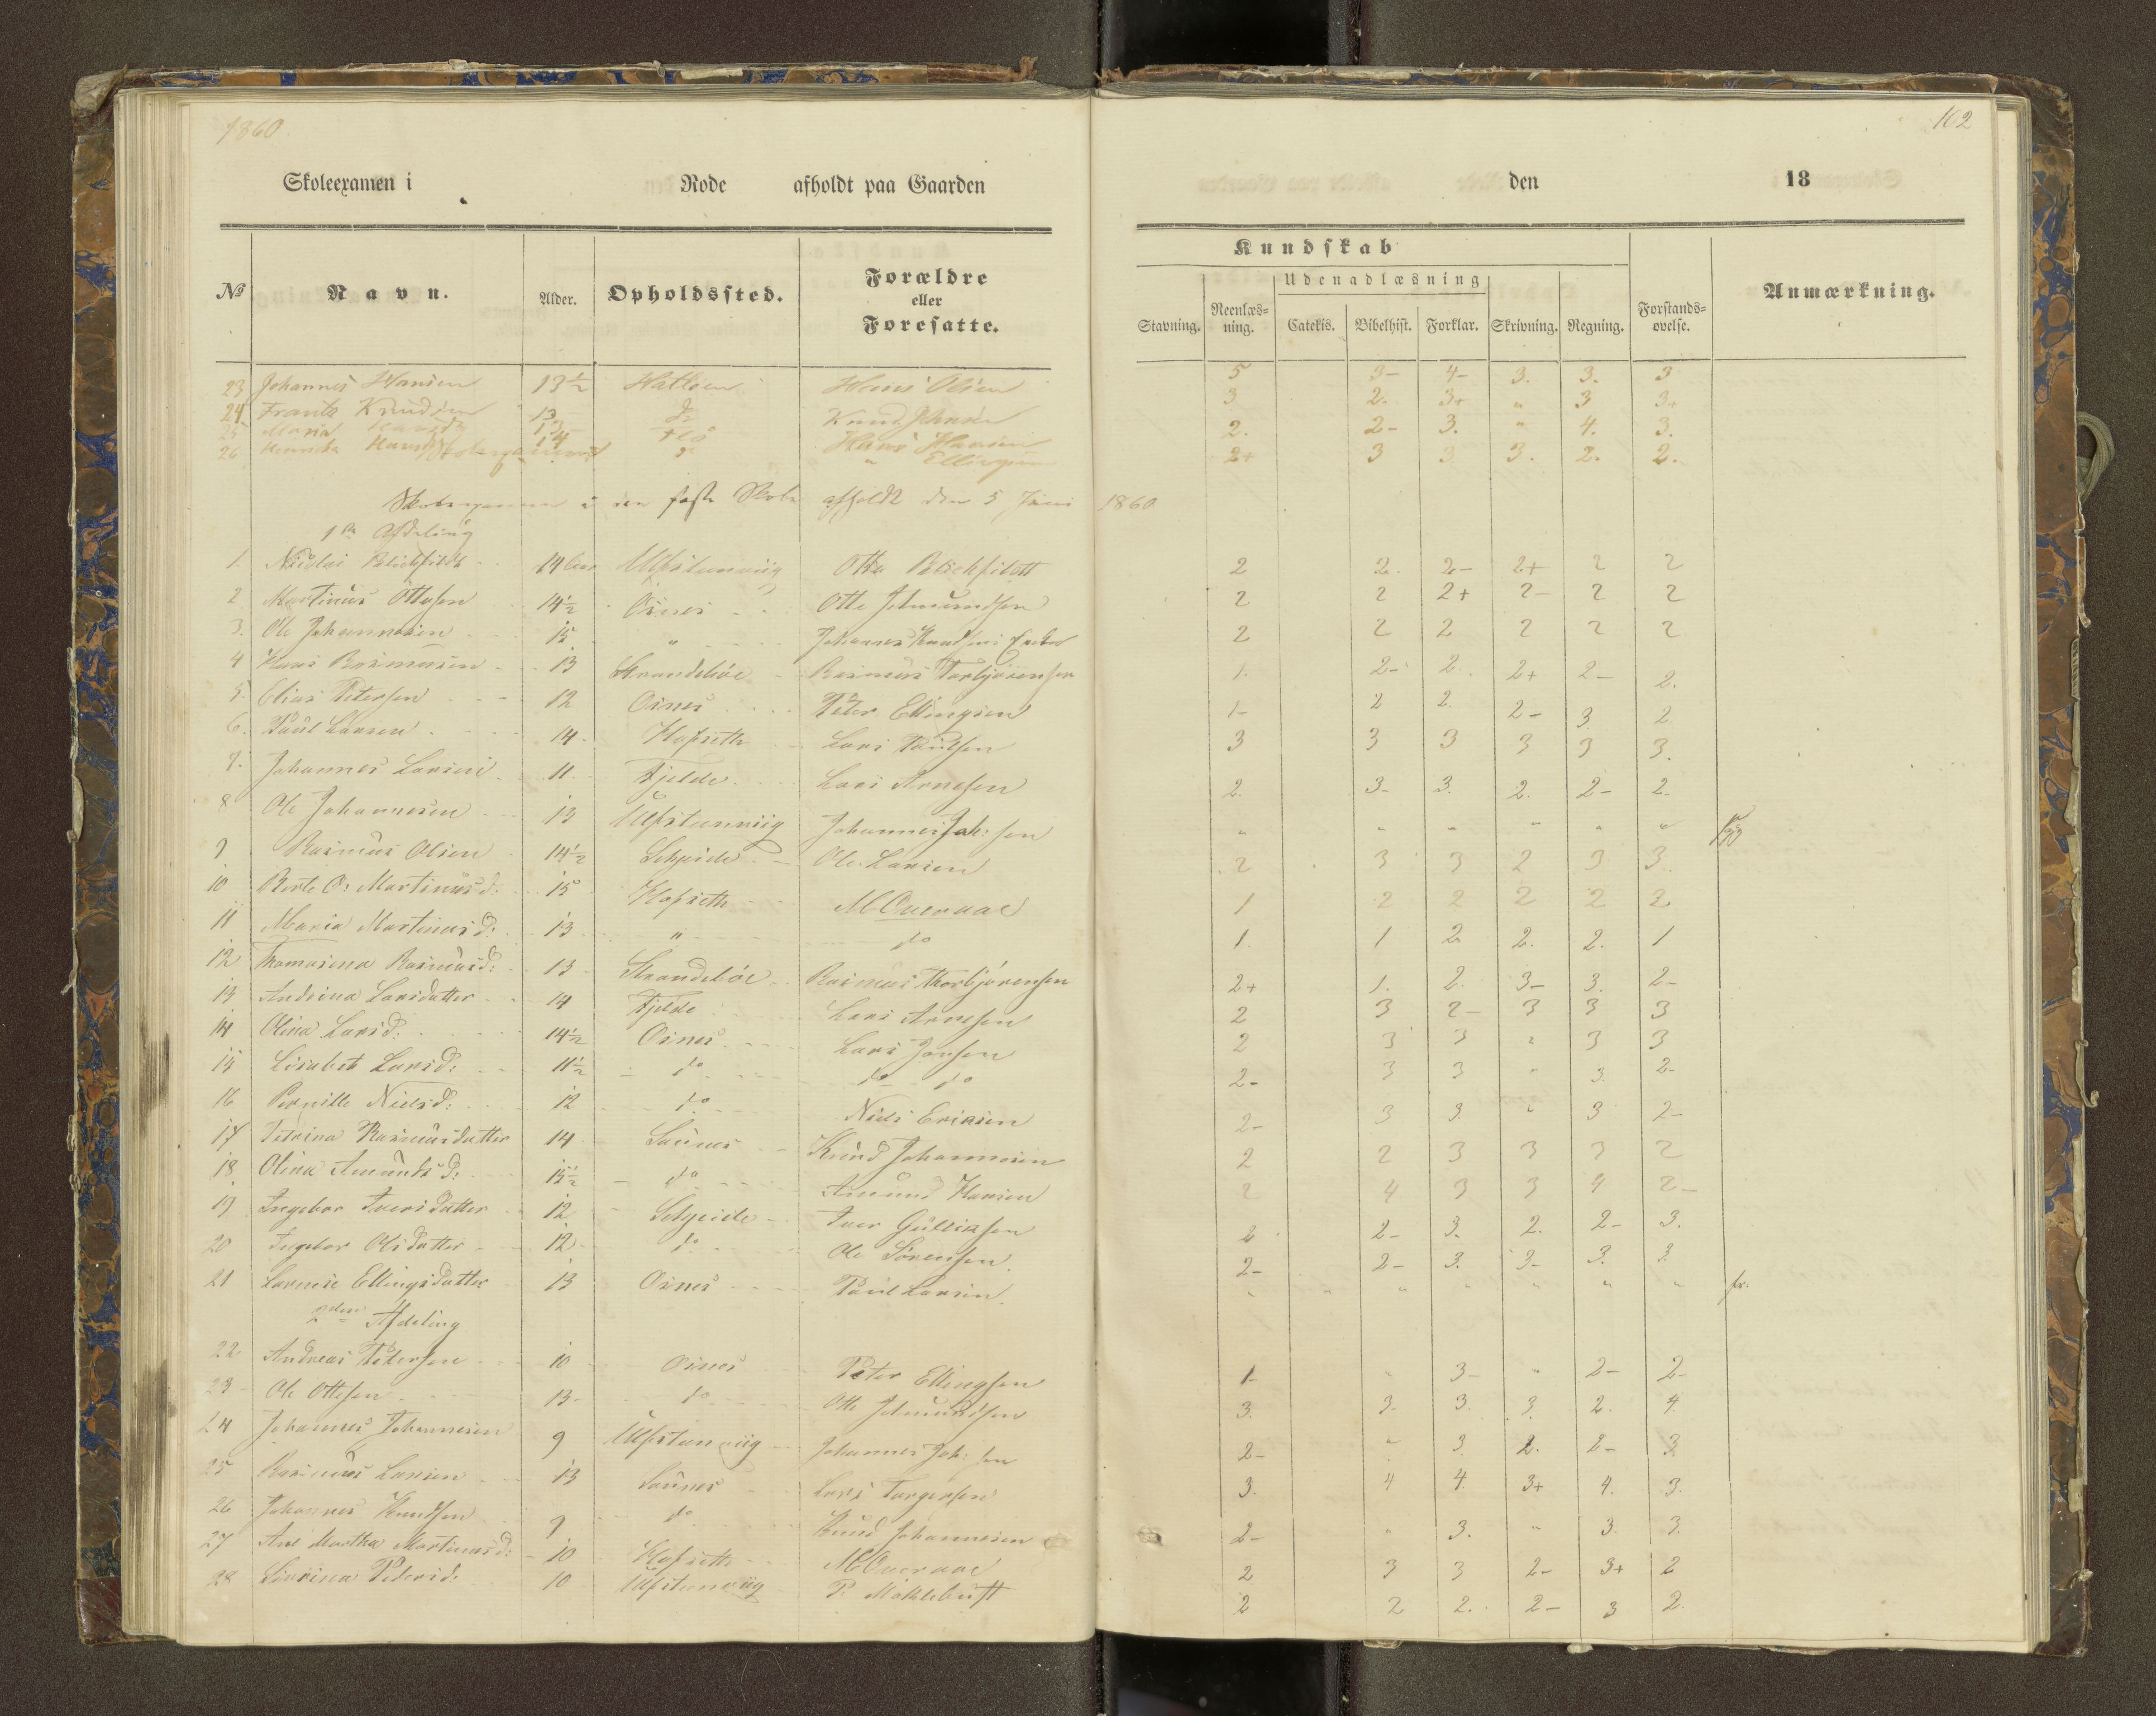 1860
162
Skoleexamen i Rode afholdt paa Gaarden den 18
Kundskab
Udenadlæsning
№ Navn. Alder. Opholdssted. Forældre eller Foresatte. Stavning. Reenlæs-ning. Catekis. Bibelhist. Forklar. Skrivning. Regning. Forstands-øvelse. Anmærkning.
23 Johannes Hansen 13½ Hans Olsen 5 3- 4- 3. 3. 3
24 Frants Knudsen 13 do Knud 3 2. 3+ " 3 3+
25 Maria 13 Hans Hansen 2. 2- 3. " 4. 3.
26 14 do " Ellingsen 2+ 3 3 3. 2. 2.
Skoleexamen i den faste Skole afholdt den 5 Juni 1860
1ste Afdeling
1. Nicolai 14 Ulfstenviig Otto 2 2. 2- 2+ 2 2
2 Martinus Ottesen 14½ Osnes Otte Amundsen 2 2 2+ 2- 2 2
3. Ole Johannesen 15 " Johannes Knudsens 2 2 2 2 2 2
4 Hans Rasmusen 13 Strandeböe Rasmus Torbjörensen 1. 2- 2. 2+ 2- 2.
5. Elias Petersen 12 Osnes Peter Ellingsen 1- 2 2. 2- 3. 2.
6. Paul Larsen 14 Hofseth Lars Paulsen 3 3 3 3 3 3.
7. Johannes Larsen 11 Fjelde Lars Arnesen 2. 3- 3. 2. 2- 2.
8 Ole Johannesen 13 Ulfstenviig Johannes Joh:sen " " " " " "
9 Rasmus Olsen 14½ Ole Larsen 2 3 3 2 3 3.
10 Berte O: Martinusd: 15 Hofseth M Overaae 1 2 2 2 2 2
11 Maria Martinusd: 13 " do 1. 1 2 2. 2. 1
12 Thomasina Rasmusd: 13 Strandeböe Rasmus Thorbjörensen 2+ 1. 2. 3- 3. 2-
13 Andrina Larsdatter 14 Fjelde Lars Arnesen 2 3 2- 3 3 3
14 Olina Larsd: 14½ Osnes Lars Jonsen 2 3 3 " 3 3
15 Lisabet Larsd: 11½ do do do 2- 3 3 " 3. 2-
16 Pernille Nielsd: 12 do Niels Eriksen 2- 3 3. " 3 2-
17 Petrina Rasmusdatter 14 Saunes Knud Johannesen 2 2 3 3 3 2
18 Olina Amundsd: 15½ do Amund Hansen 2 4 3 3 4 2-
19 Ingebor Iversdatter 12 Iver Gulliksen 2 2- 3. 2. 2- 3.
20 Ingebor Olsdatter 12 do Ole Sörensen. 2- 2- 3. 3- 3. 3.
21 Larensie Ellingsdatter 13 Osnes Paul Larsen. " " " " " " " fr.
2den Afdeling
22 Andreas Petersen 10 Osnes Peter Ellingsen 1- " 3- " 2- 2-
23 Ole Ottesen 13 do Otte Amundsen 3. 3. 3. 3. 2. 4.
24 Johannes Johannesen 9 Ulfstenviig Johannes Joh:sen 2- " 3. 2. 2- 3.
25 Rasmus Larsen 13 Saunes Lars Torgersen 3. 4 4. 3+ 4. 3.
26 Johannes Knudsen 9 do Knud Johannesen 2- " 3. " 3. 3.
27 Ane Martha Martinusd: 10 Hofseth M Overaae 2 3 3 2- 3+ 2
28 Pedersd: 10 Ulfstenviig P. Möklebust 2 2 2. 2- 3 2.